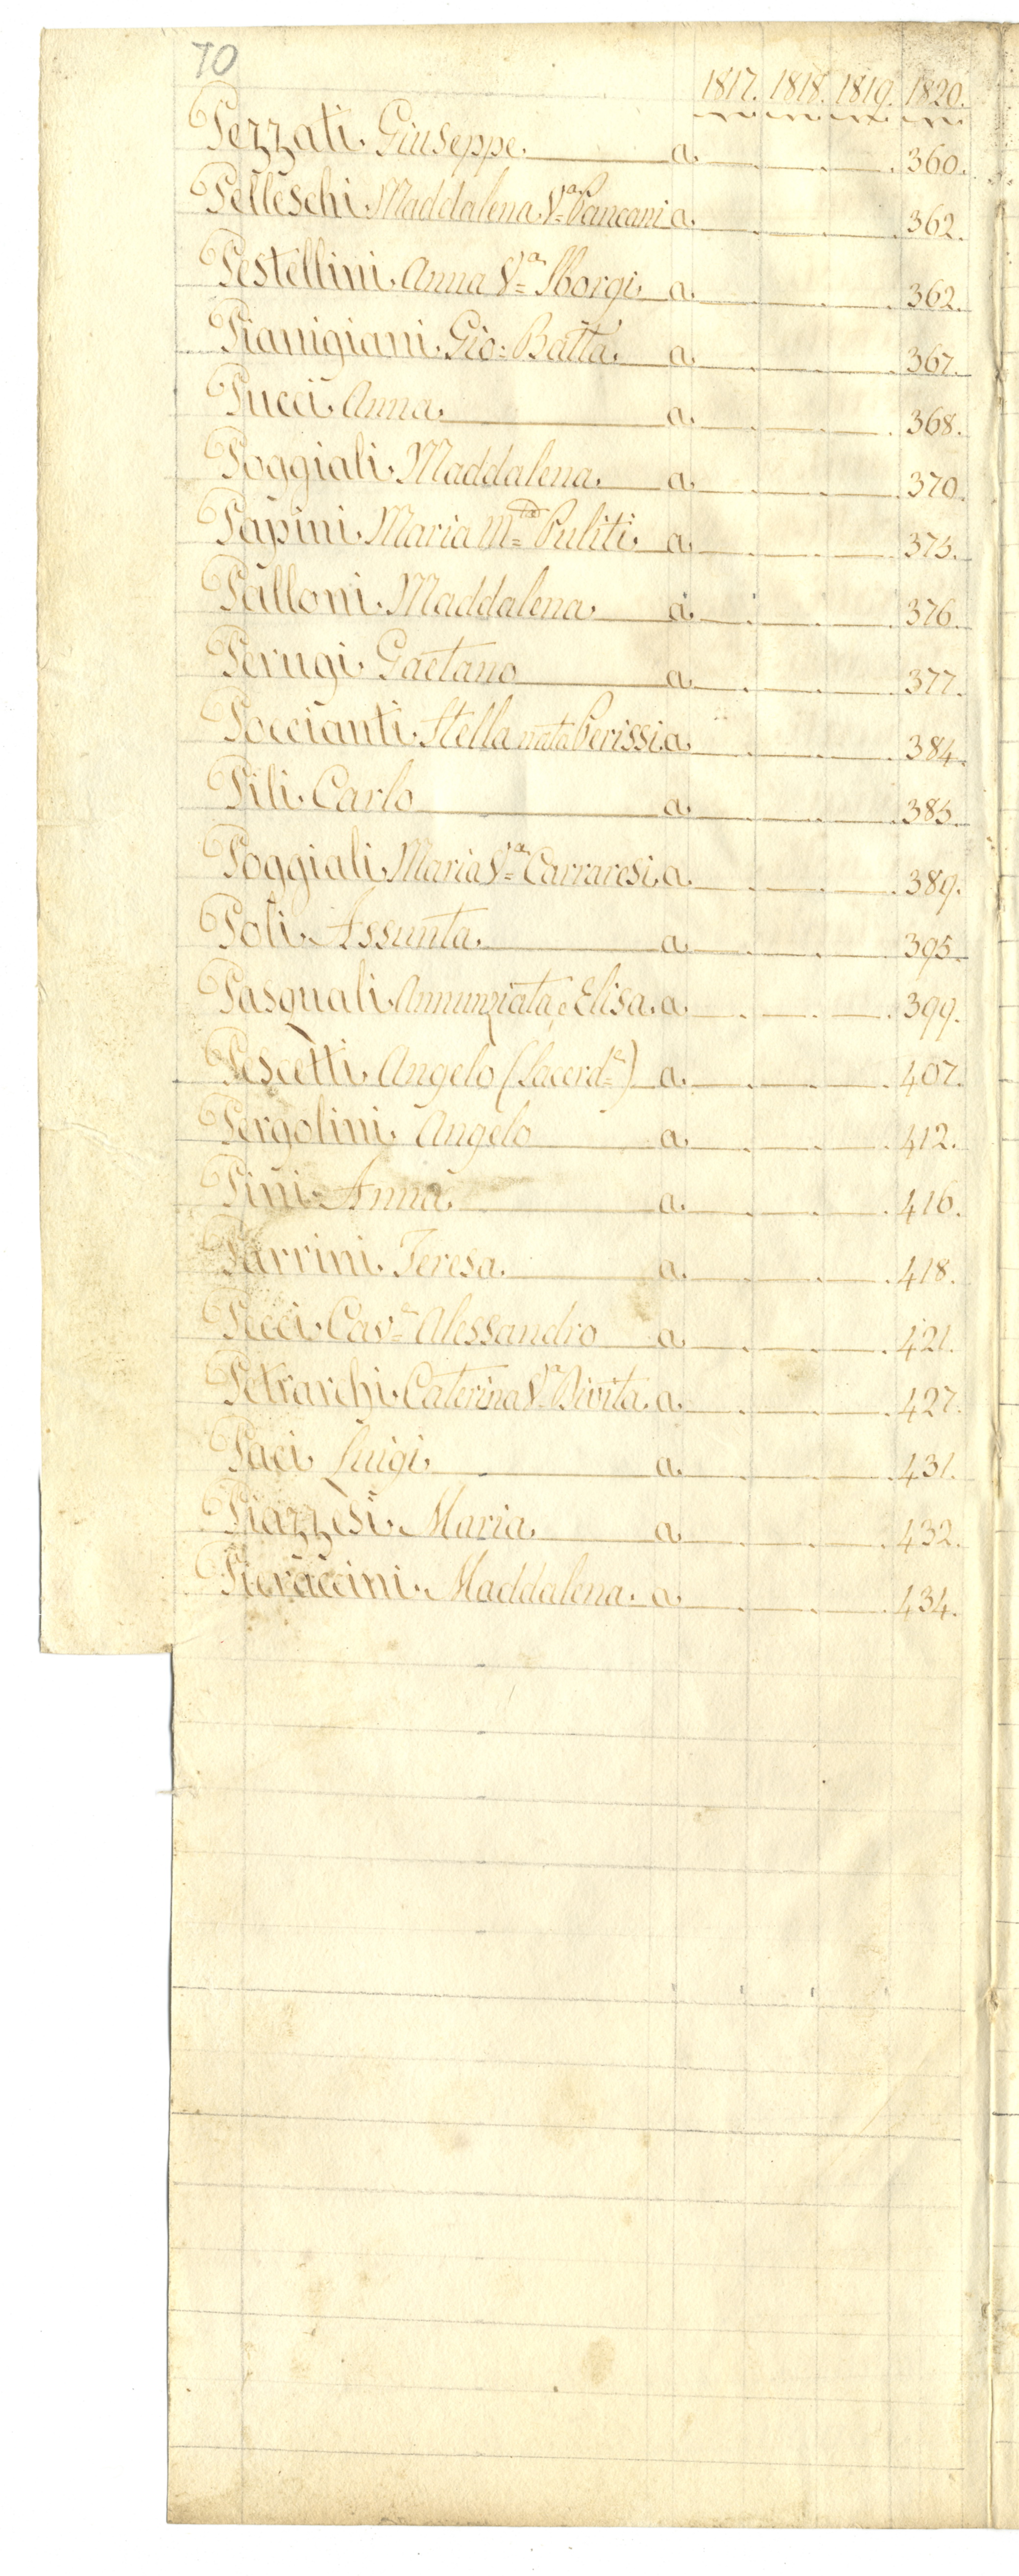 70
1817. 1818. 1819. 1820.
Pezzati. Giuseppe. a. 360.
Pelleschi. Maddalena. Vª Pancani a. 362.
Pestellini. Anna Vª Sborgi. a. 362.
Pianigiani. Gio: Batta. a. 367.
Pucci. Anna. a. 368.
Poggiali. Maddalena. a. 370.
Papini. Maria Mta Puliti. a. 375.
Palloni. Maddalena. a. 376.
Perugi. Gaetano a. 377.
Poccianti. Stella nata Perissi. a. 384.
Pili. Carlo a. 385.
Poggiali. Maria Vª Carraresi. a. 389.
Poli. Assunta. a. 395.
Pasquali. Annunziata, e Elisa. a. 399.
Pescetti. Angelo (Sacerde) a. 407.
Pergolini. Angelo a. 412.
Pini. Anna. a. 416.
Parrini. Teresa. a. 418.
Pecci. Cavr Alessandro a. 421.
Petrarchi. Caterina Vª Divita. a. 427.
Paci. Luigi. a. 431.
Piazzesi. Maria. a. 432.
Pieraccini. Maddalena. a. 434.